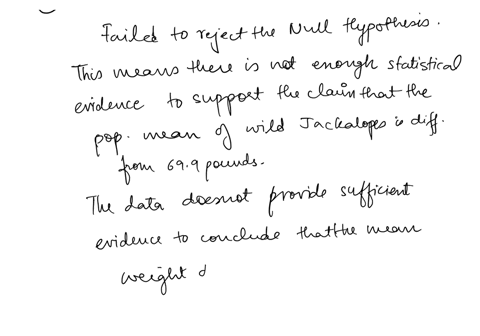 Failed to reject the Null Hypothesis.
This means there is not enough statistical
evidence to support the claim that the
pop. mean of wild Jackalopes is diff.
from 69.9 pounds.
The data doesnot provide sufficient
evidence to conclude that the mean
weight d